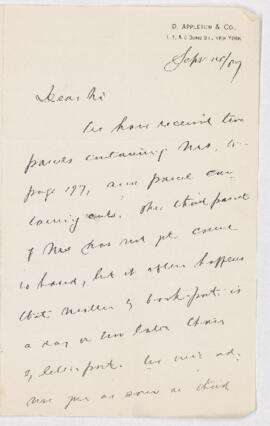 D. APPLETON & CO.,
1, 3, & 5 BOND ST., NEW YORK.
Sept
Dear Sir
We have received two
parcels containing Mss, to
page 197, and parcel con-
taining cuts. The third parcel
of Mss has not yet come
to hand, but it often happens
that matter by book-post is
a day or two later than
by letter-post. We will ad-
vise you as soon as third